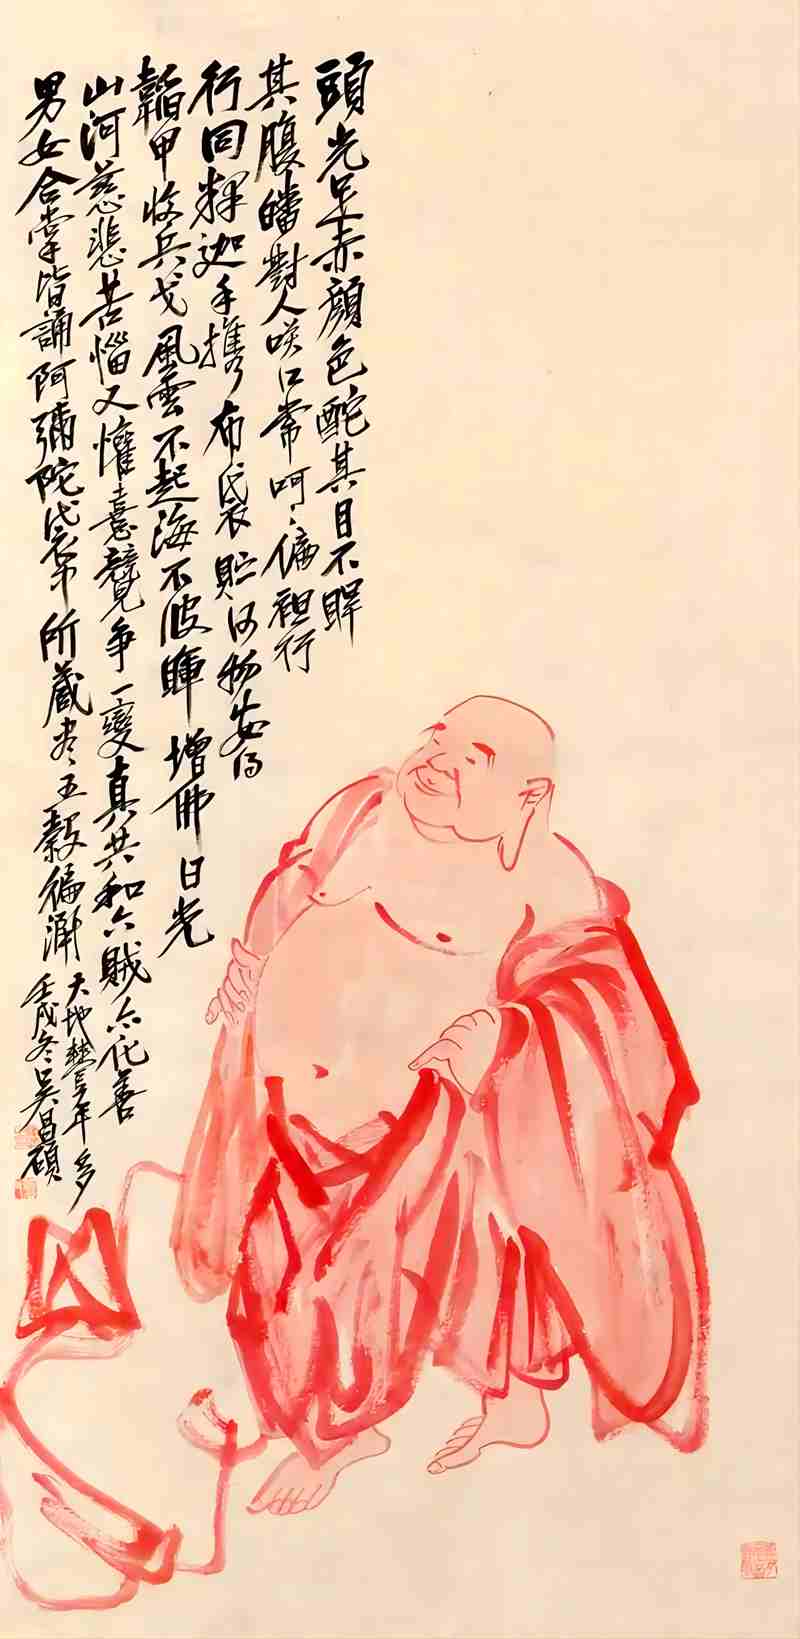 頭光足赤顏色酡其目不瞬
其腹皤對人咲口常呵〻偏袒行
行同釋迦手攜布袋貯何物安得
韜甲收兵戈風雲不起海不波暉增佛日光
山河慈悲苦惱又懽喜競爭一變真共和六賊亦化善
男女合掌皆誦阿彌陀袋中所藏者五穀徧溥
天地
年多
壬戌冬吳昌碩